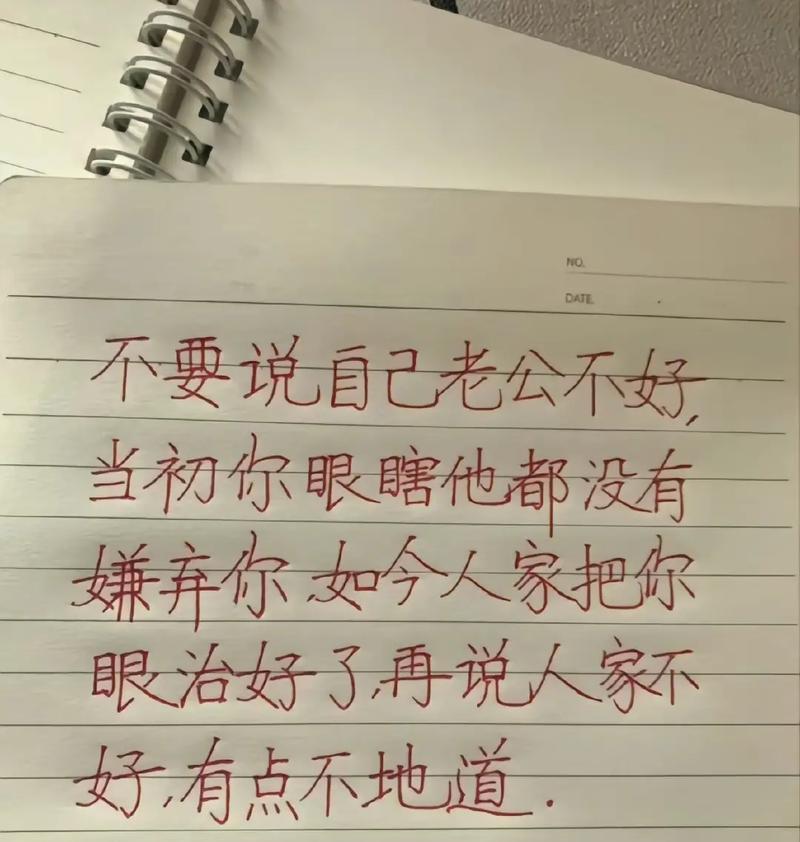 NO.
DATE.
不要说自己老公不好,
当初你眼瞎他都没有
嫌弃你,如今人家把你
眼治好了,再说人家不
好,有点不地道.